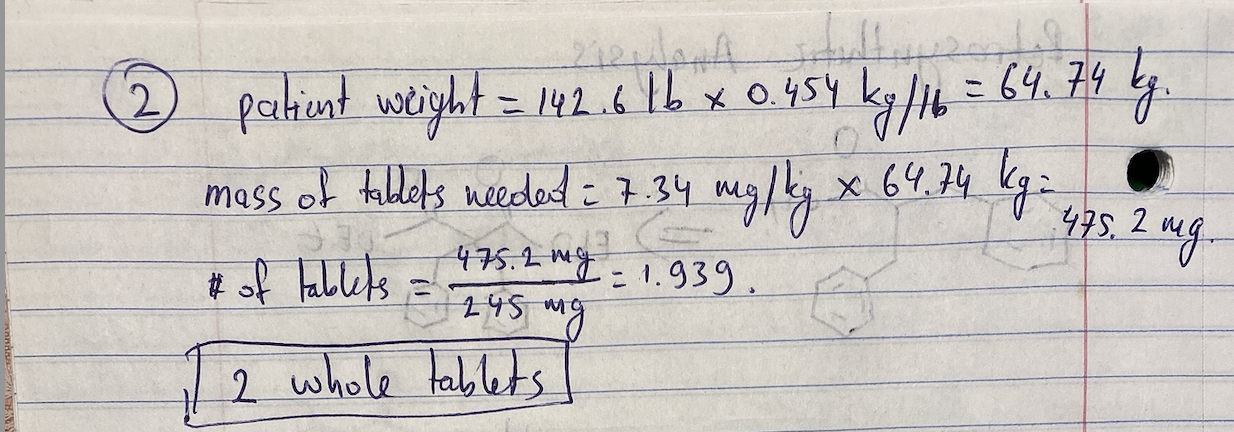 2 patient weight = 142.6 lb × 0.454 kg/lb = 64.74 kg.
mass of tablets needed = 7.34 mg/kg × 64.74 kg =
475.2 mg.
# of tablets = 475.2 mg / 245 mg = 1.939.
2 whole tablets